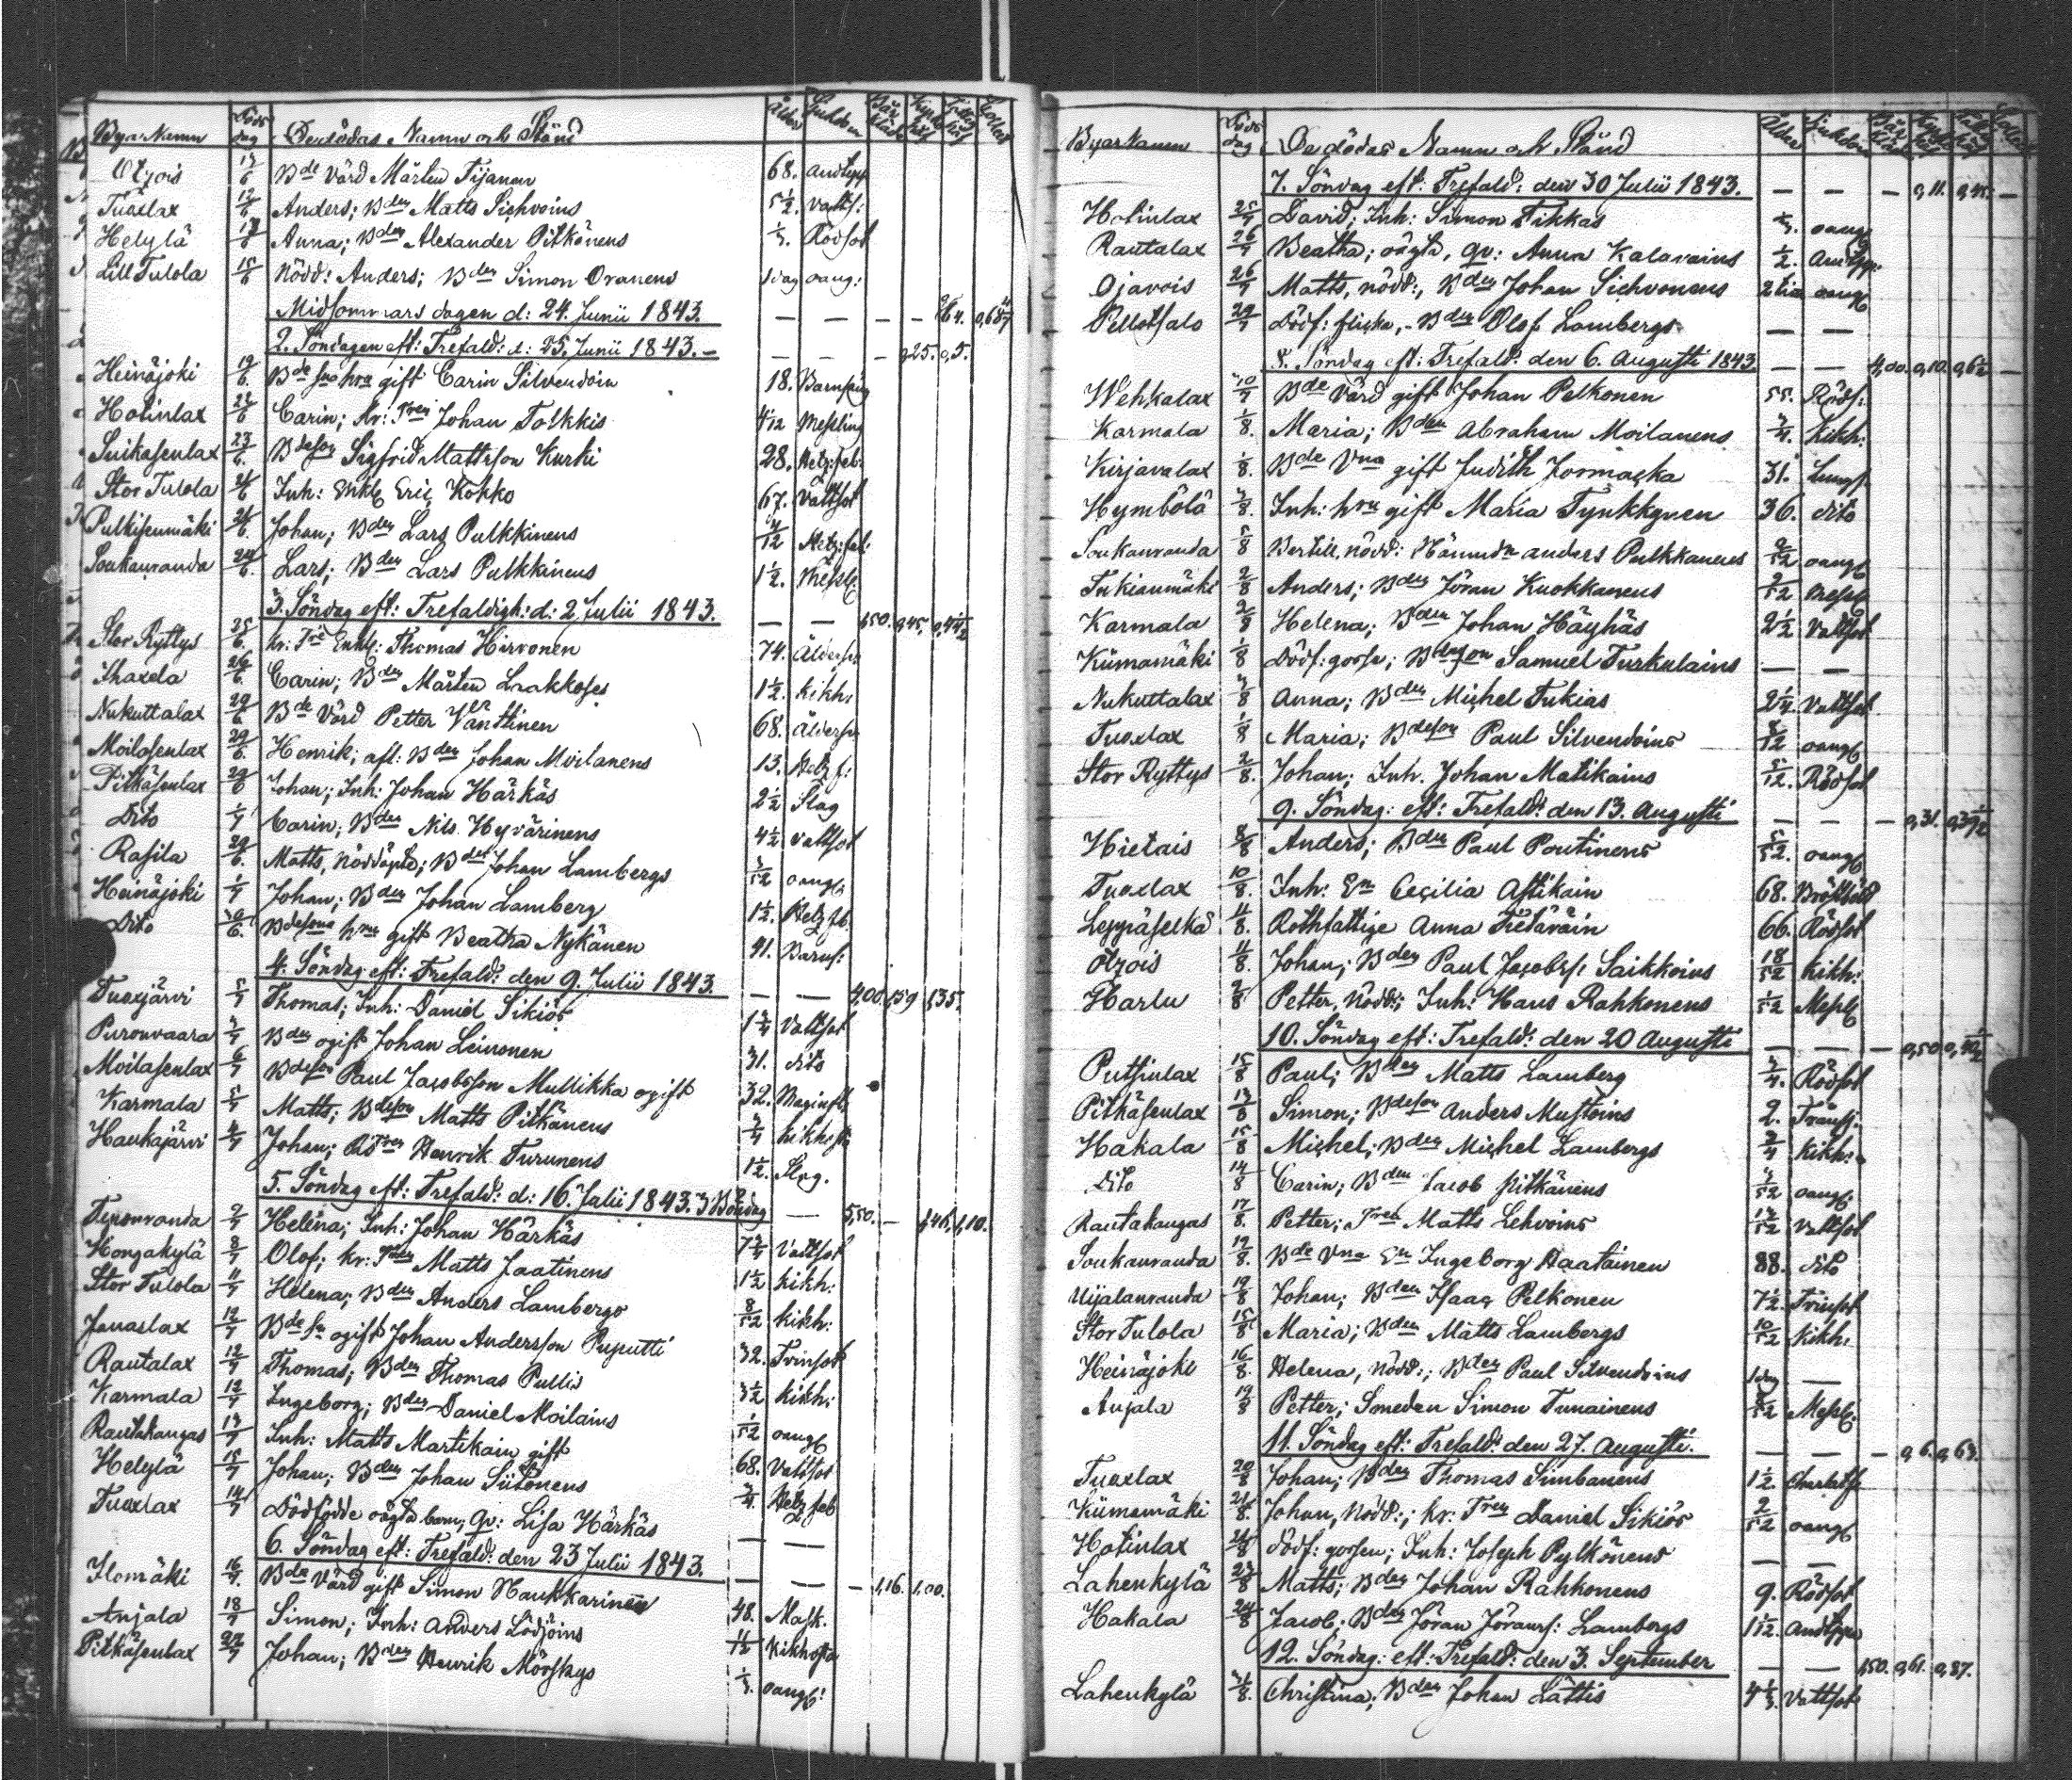 Byar Namn Döds dag De dödas Namn och Stånd Ålder Sjukdom
Otsois 17/6 Bde Värd Mårten Tijanen 68. Andtepp
Tuoxlax 12/6 Anders; Bden Matts Sichvoins 5 1/2. Vatts:
Helylä 13/6 Anna; Bden Alexander Pitkänens Rödsot
Lill Tulola 15/6 Nödd: Anders; Bden Simon Oranens 1 dag oang:
Midsommars dagen d: 24. Junii 1843. — — — —
2. Söndagen eft: Trefald: d: 25. Junii 1843. — — — — 0,25. 0,5.
Heinäjoki 19/6. Bde sns hru gift Carin Silvendoin 18. Barnsäng
Hotinlax 22/6 Carin; kr: Tren Johan Tolkkis 4/12 Messling
Suikasenlax 23/6. Bdeson Sigfrid Mattsson Kurki 28. Hetz: feb:
Stor Tulola 21/6 Inh: Enkl: Eric Kokko 67. Vattsot
Pulkisenmäki 21/6. Johan; Bden Lars Pulkkinens Hetz: feb:
Soukanranda 24/6. Lars; Bden Lars Pulkkinens 1 1/2. Messl:
3. Söndag eft: Trefaldigh: d: 2 Julii 1843. — —
Stor Ryttys 25/6. kr: Tre Enkl: Thomas Hirvonen 74. Ålders:
Ihaxela 26/6. Carin; Bden Mårten Laakkoses 1 1/2. kikh:
Nukuttalax 29/6 Bde Värd Petter Vänttinen 68. Ålders:
Moilasenlax 29/6. Henrik; afl: Bden Johan Moilanens 13. Hetz f:
Pitkäsenlax 29/6 Johan; Inh: Johan Härkäs 2 1/2 Slag
Dito 1/7 Carin; Bden Nils Hyvärinens 4 1/2 Vattsot
Rasila 29/6. Matts, Nöddöpt; Bden Johan Lambergs oangl:
Heinäjoki 1/7 Johan; Bden Johan Lamberg 1 1/2. Hetz fb
Dito 30/6. Bdesons hru gift Beatha Nykänen 41. Barns:
4. Söndag eft: Trefald: den 9. Julii 1843. — — 4,00. 1,59 1,35.
Tuoxjärvi 5/7 Thomas; Inh: Daniel Sikiös Vattsot
Puronvaara 3/7 Bden ogift Johan Leinonen 31. dito
Moilasenlax 6/7 Bdeson Paul Jacobsson Mullikka ogift 32.
Karmala 5/7 Matts; Bdeson Matts Pitkänens 3/4 kikhost
Haukajärvi 4/7 Johan; Henrik Turunens 1 1/2. Slag.
5. Söndag eft: Trefald: d: 16. Julii 1843. 3 Böndag — 5,50. — 1,46. 1,10.
Teponranda 2/7 Helena; Inh: Johan Härkäs Vattsot
Hongakylä 8/7 Olof; kr: Tren Matts Jaatinens 1 1/2 kikh:
Stor Tulola 11/7 Helena; Bden Anders Lambergs 8/52 kikh:
Janaslax 12/7 Bde sn ogift Johan Andersson Puputti 32. Tvinsot
Rautalax 12/7 Thomas; Bden Thomas Pullis 3 1/2 kikh:
Karmala 12/7 Ingeborg; Bden Daniel Moilains 1/52 oangl
Rautakangas 13/7 Inh: Matts Martikain gift 68. Vattsot
Helylä 15/7 Johan; Bden Johan Siitonens 3/4. Hetz feb
Tuoxlax 14/7 Dödfödde oägta barn; Qv: Lisa Härkäs — —
6. Söndag eft: Trefald: den 23 Julii 1843. — — — 1,16. 1,00.
Ilomäki 16/7. Bde Värd gift Simon Haukkarinen 48. Mask.
Anjala 18/7 Simon; Inh: Anders Lödjöins Kikhosta
Pitkäsenlax 22/7 Johan; Bden Henrik Mörskys oangl:
Byar Namn Döds dag De dödas Namn och Stånd Ålder Sjukdom
7. Söndag eft: Trefald: den 30 Julii 1843. — — —
Hotinlax 25/7 David; Inh: Simon Tikkas oangl
Rautalax 26/7 Beatha; oägta, Qv: Anna Kalavains 1/2. Andtpp:
Ojavois 26/7 Matts, nödd:, Bden Johan Sichvonens oangl
Pellotsalo 29/7 Dödf: flicka, Bden Olof Lambergs — —
8. Söndag eft: Trefald: den 6. Augusti 1843. — —
Wehkalax 30/7 Bde Värd gift Johan Pelkonen 55. Röds:
Karmala 1/8. Maria; Bden Abraham Moilanens 3/4. kikh:
Kirjavalax 1/8. Bde Vna gift Judith Jormacka 31. Lungs:
Hymbölä 3/8. Inh: hru gift Maria Tynkkynen 36. dito
Soukanranda 5/8 Bertill, nödd: Nämndn Anders Pulkkanens 2/52 oangl
Tukianmäki 2/8 Anders; Bden Jöran Kuokkanens Messl
Karmala 2/8 Helena; Bden Johan Häyhäs 2 1/2 Vattsot
Kiimamäki 1/8 Dödf: gosse; Bdeson Samuel Turkulains — —
Nukuttalax 3/8 Anna; Bden Michel Tukias 2 1/4. Vattsot
Tuoxlax 1/8 Maria; Bdeson Paul Silvendoins oangl
Stor Ryttys 2/8. Johan; Inh. Johan Matikains Rödsot
9. Söndag: eft: Trefald: den 13. Augusti — — —
Hietais 8/8 Anders; Bden Paul Poutinens 5/52. oangl
Tuoxlax 10/8. Inh: En Cecilia Astikain 68. Bröstböld
Leppäselkä 11/8. Rothfattige Anna Pietäväin 66. Rödsot
Otsois 11/8. Johan; Bden Paul Jacobss: Saikkoins 18/52 kikh:
Harlu 2/8 Petter, Nödd:; Inh: Hans Rahkonens 1/52 Messl
10. Söndag eft: Trefald: den 20 Augusti — — —
Putsinlax 15/8 Paul; Bden Matts Lamberg 3/4. Rödsot
Pitkäsenlax 13/8 Simon; Bdeson Anders Mustoins 2.
Hakala 15/8 Michel; Bden Michel Lambergs 3/4 kikh:
Dito 14/8 Carin; Bden Jacob Pitkänens 3/52 oangl:
Rautakangas 17/8. Petter; Tren Matts Lehvoins Vattsot
Soukanranda 19/8. Bde Vna En Ingeborg Haatainen 88. dito
Uijalanranda 19/8 Johan; Bden Isaac Pelkonen 7 1/2. Tvinsot
Stor Tulola 15/8 Maria; Bden Matts Lambergs 10/52 kikh:
Heinäjoki 16/8. Helena, nödd:; Bden Paul Silvendoins 1 dag —
Anjala 19/8 Petter; Smeden Simon Tunainens Messl:
11. Söndag eft: Trefald: den 27. Augusti. — — — 0,6. 0,63.
Tuoxlax 20/8 Johan; Bden Thomas Simbanens 1 1/2.
Kiimamäki 21/8. Johan, Nödd:; kr: Tren Daniel Sikiös 2/52 oangl
Hotinlax Dödf: gossen; Inh: Joseph Pylkönens — —
Lahenkylä 23/8 Matts; Bden Johan Rahkonens 9. Rödsot
Hakala 24/8 Jacob; Bden Jöran Jörans: Lambergs Andtpp
12. Söndag: eft: Trefald: den 3. September — — 1,50. 0,61. 0,87.
Lahenkylä 31/8. Christina; Bden Johan Lättis Vattsot